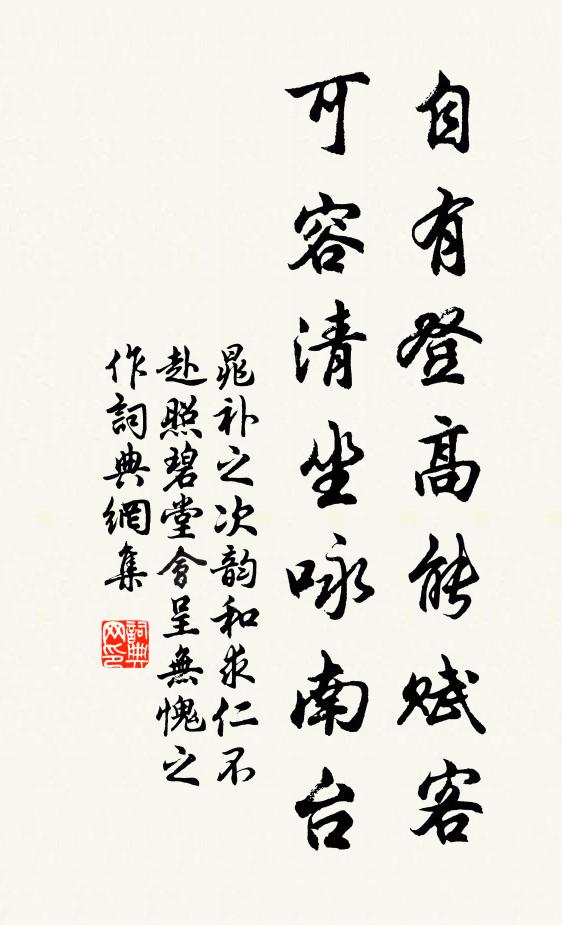 自有登高能赋客
可容清坐咏南台
晁补之次韵和求仁不
赴照碧堂會呈無愧之
作詞典網集
詞典
网印